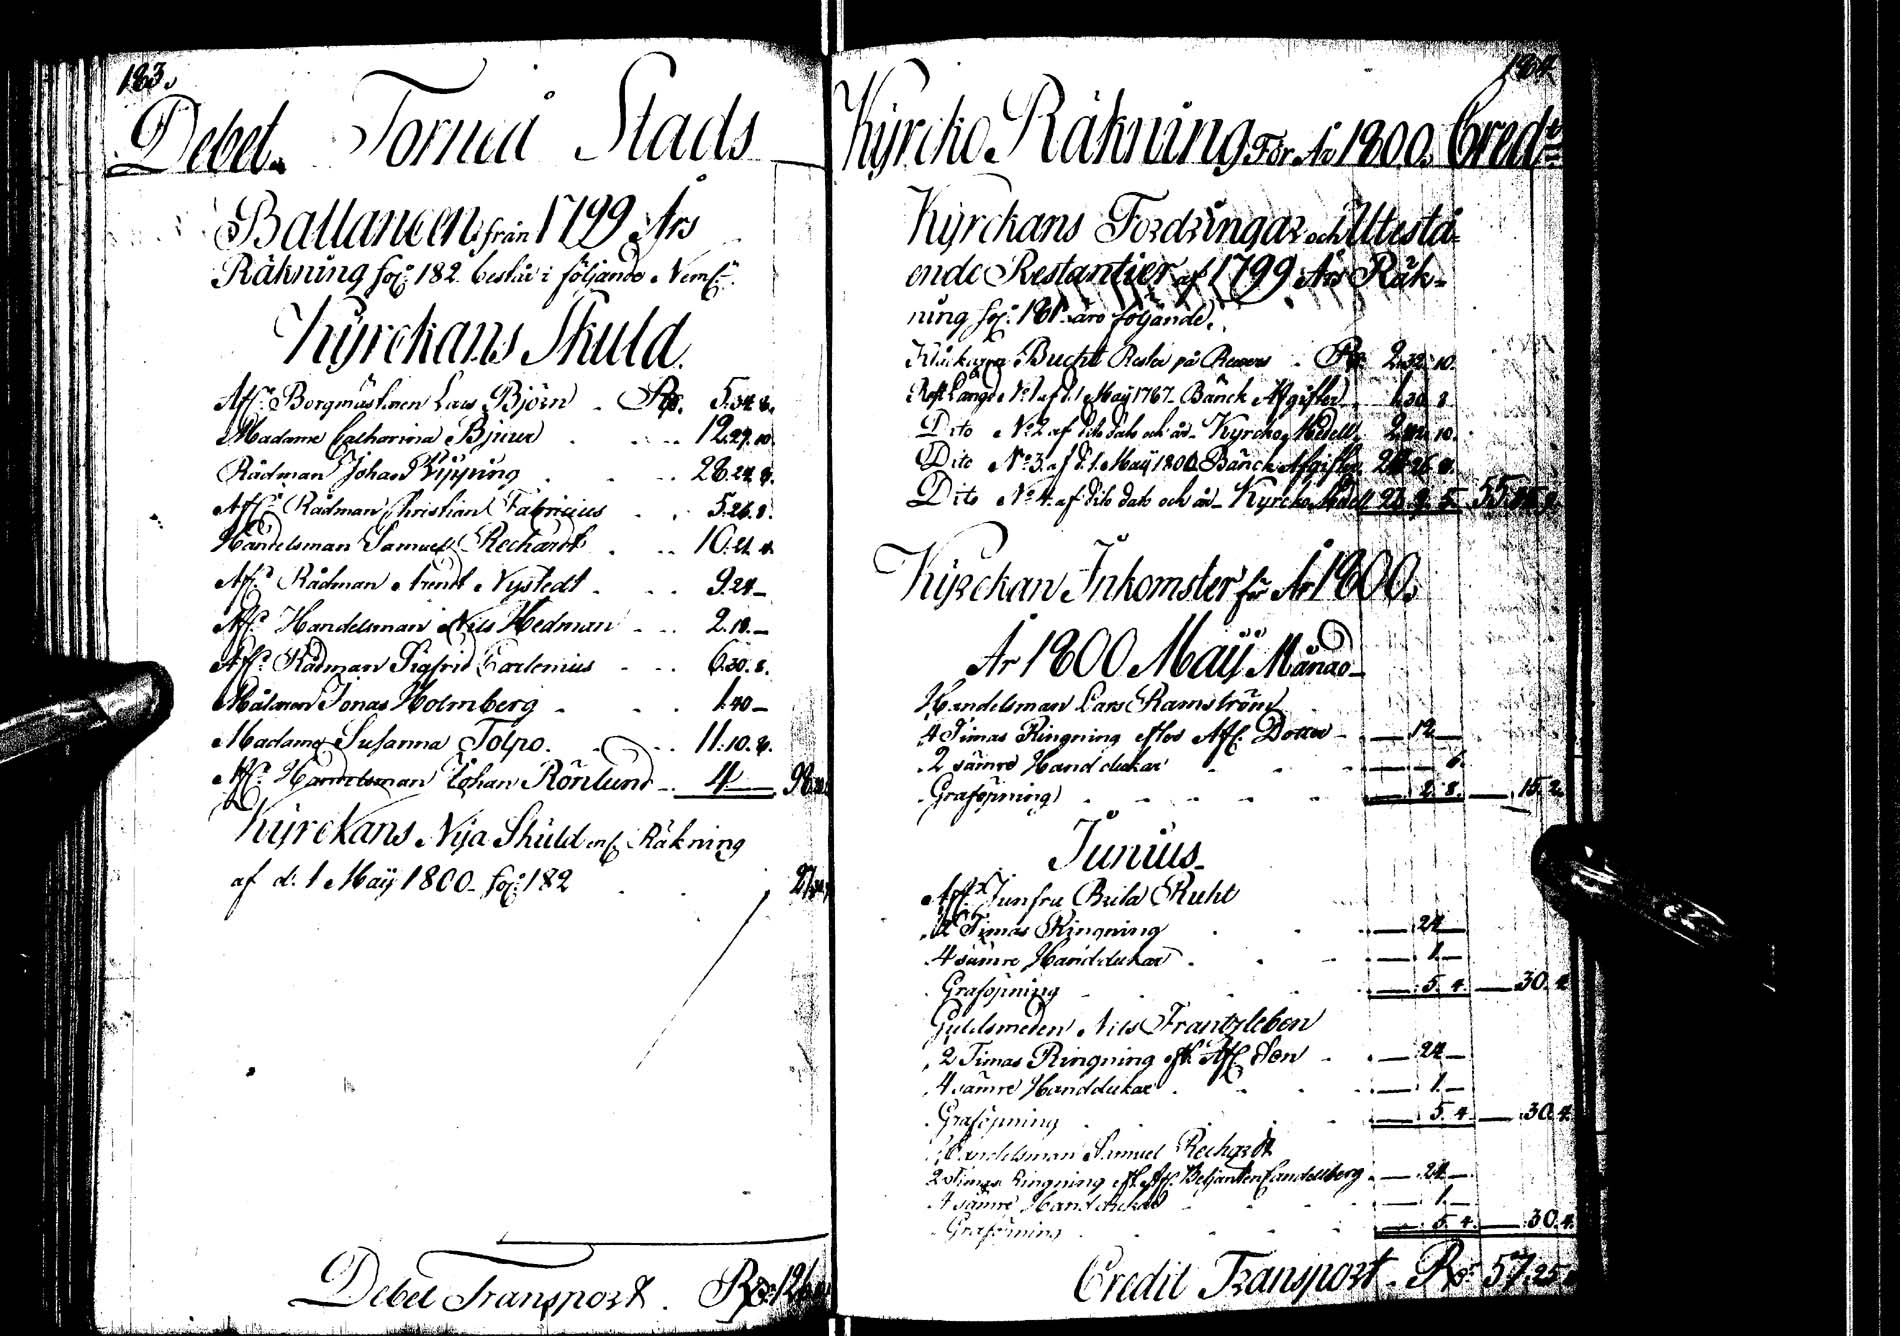 183.
Debet. Torneå Stads
Ballancen från 1799 Års
Räkning fol: 182. består i följande Neml:
Kyrckans Skuld.
Afl: Borgmästaren Lars Björn . Rd. 5.34.8.
Madame Catharina Bjuur . . . 12.29.10.
Rådman Johan Kipping . . . 26.24.8.
Afl: Rådman Christian Fabricius . . 5.26.8.
Handelsman Samuel Rechardt . . . 10.21.4.
Afl: Rådman Arendt Nystedt . . . 9.24.—
Afl: Handelsman Nils Hedman . . . 2.18.—
Afl: Rådman Sigfrid Corlenius . . . 6.30.8.
Målaren Jonas Holmberg . . . 1.40—
Madame Susanna Tolpo . . . 11.10.8.
Afl: Handelsman Johan Rönlund . . 4.— 98.
Kyrckans Nya Skuld enl: Räkning
af d: 1 Maÿ 1800. fol: 182 . . 27.
Debet Transport. Rd: 126.
184.
Kyrcko Räkning För År 1800. Credit
Kyrckans Fordringar och Utestå-
ende Restantier af 1799 Års Räk-
ning fol: 181. äro följande.
Bucht Rester på Revers . Rd 2.32.10.
Rest Längd No 1 af d: 1 Maÿ 1767. Bänck Afgifter . 1.30.8.
Dito No 2 af dito dato och år. Kyrcko Medell. 2. 10.
Dito No 3. af d: 1. Maÿ 1800. Bänck Afgifter. 26.
Dito No 4. af dito dato och år. Kyrcko Medell 55.
Kyrckan Inkomster för År 1800.
År 1800 Maÿ Månad.
Handelsman Lars Ramström
4 Timas Ringning efter Afl: Dotter — — 12 —
2 sämre Handdukar . . — — 6.
Graföpning . . . — 2.8. — 15.2.
Junius.
Afl: Jungfru Brita Ruht
2 Timas Ringning . . — 24 —
4 sämre Handdukar . . — 1. —
Graföpning . . — 5.4. — 30.4.
Guldsmeden Nils Frantzleben
2 Timas Ringning eft. Afl: Son . — 24 —
4 sämre Handdukar . . — 1. —
Graföpning . . — 5.4. — 30.4.
Handelsman Samuel Rechardt
2 Timas Ringning eft. Afl: Betjenten Candelberg . — 24 —
4 sämre Handdukar . . — 1. —
Graföpning . . — 5.4. — 30.4.
Credit Transport. Rd: 57.25.